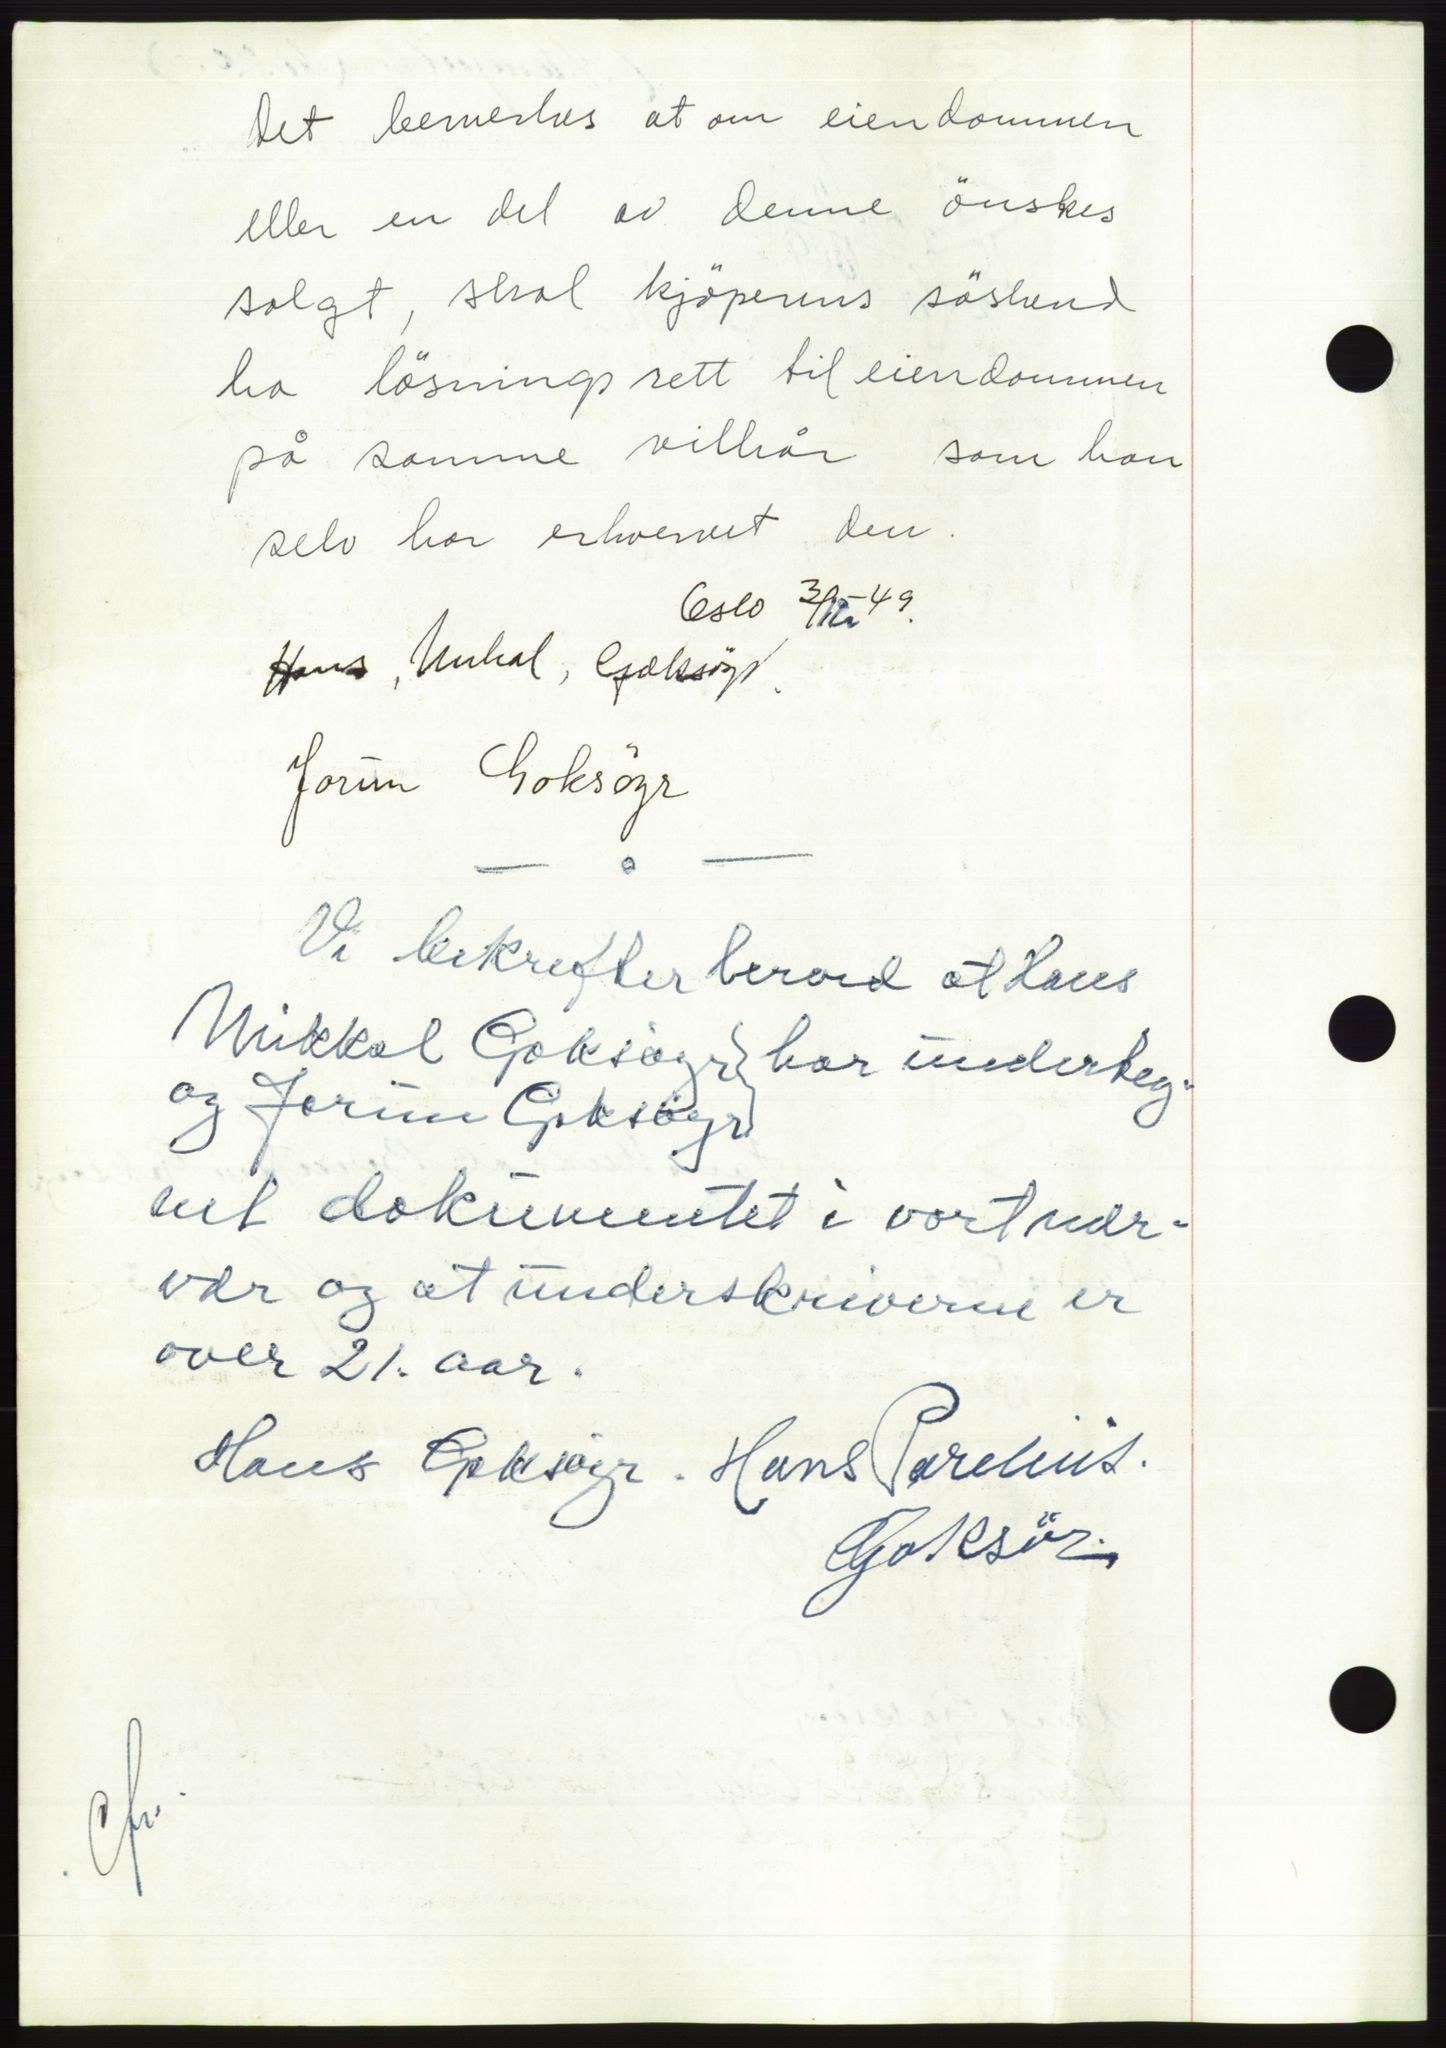 Det bemerkes at om eiendommen
eller en del av denne önskes
solgt, skal kjöperens söskend
ha lösningsrett til eiendommen
på samme vilkår som han
selv har erhvervet den.
Oslo 3/12-49.
Hans, Mikal, Goksöyr.
Jorün Goksöyr
— o —
Vi bekrefter herved at Hans
Mikkal Goksöyr } har ünderteg-
og Jorün Goksöyr
net dokümentet i vort nær-
vær og at ünderskriverne er
over 21. aar.
Hans Goksöyr. Hans Parelius.
Goksör.